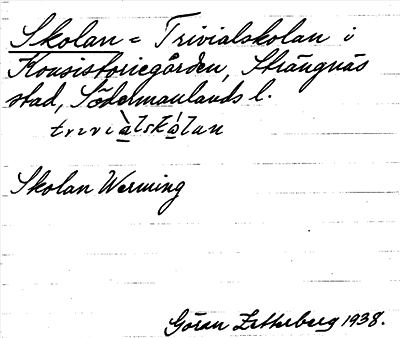 Skolan = Trivialskolan i
Konsistoriegården, Strängnäs
stad, Södermanlands l.
trivià̠lskå̠lan
Skolan Werming
Göran Zetterberg 1938.